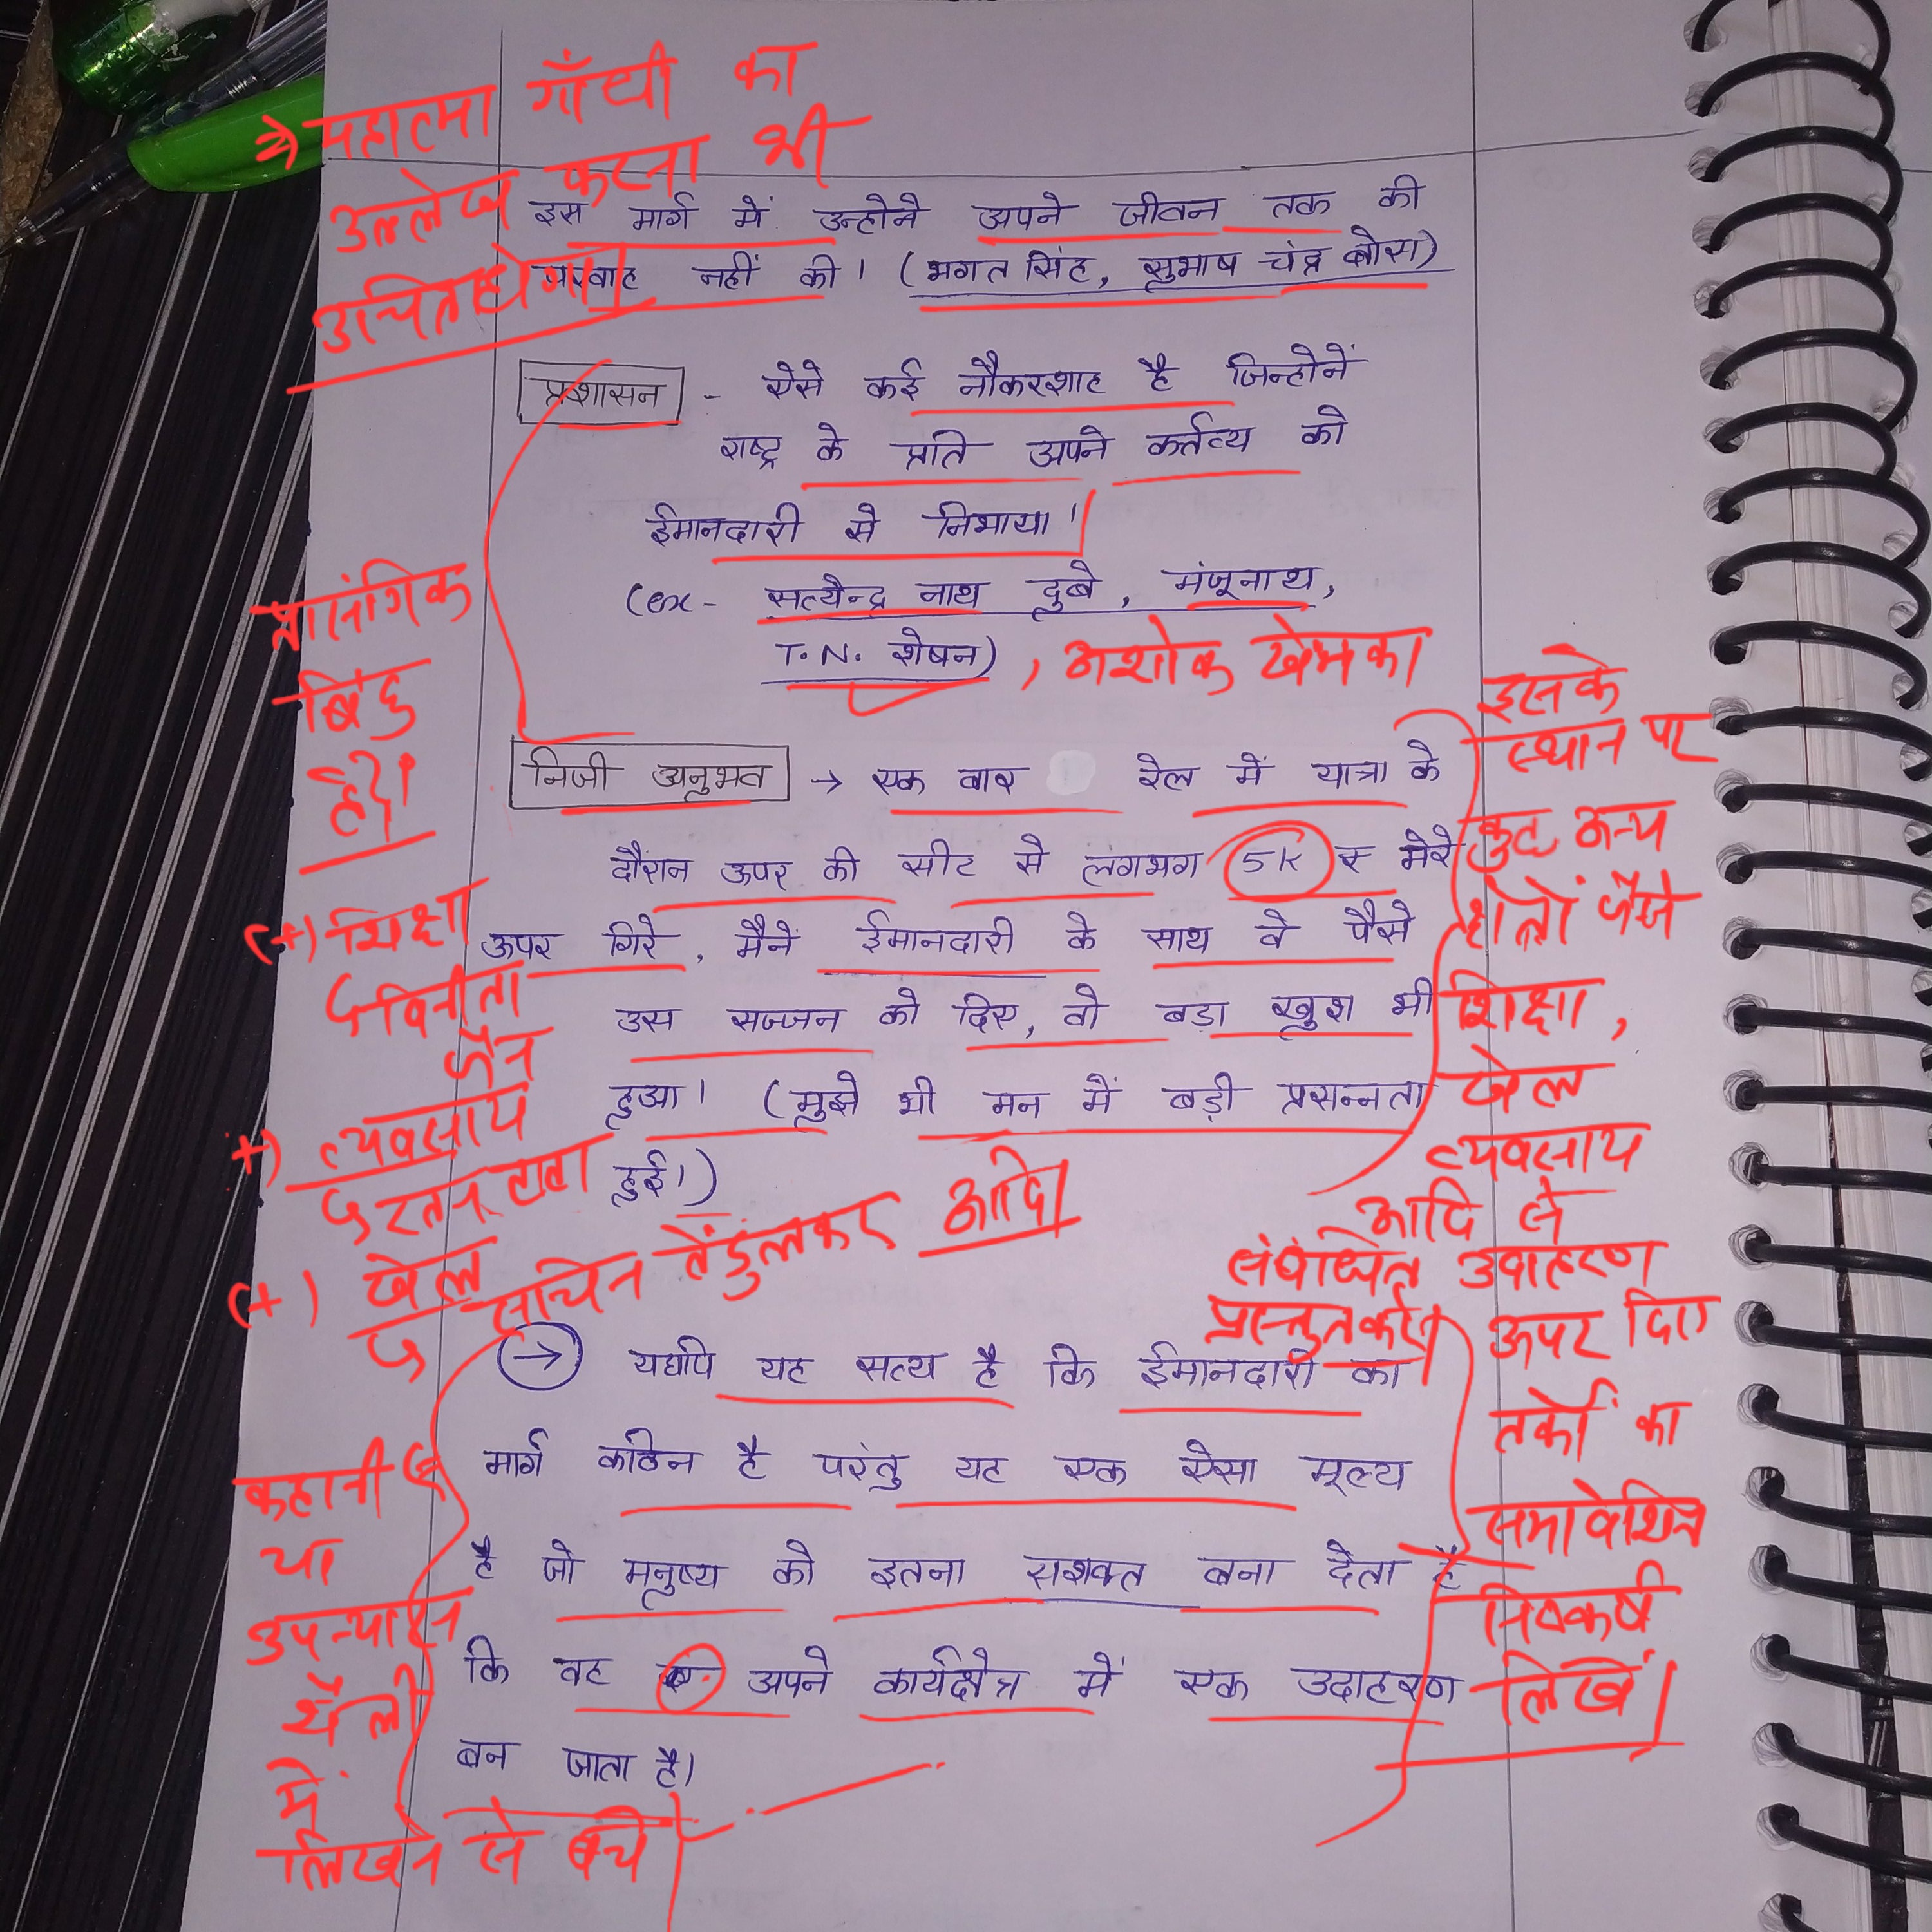 ⇒ महात्मा गाँधी का
उल्लेख करना भी
उचित होगा।
इस मार्ग में उन्होने अपने जीवन तक की
परवाह नहीं की। (भगत सिंह, सुभाष चंद्र बोस)
प्रशासन - ऐसे कई नौकरशाह है जिन्होनें
राष्ट्र के प्रति अपने कर्तव्य को
ईमानदारी से निभाया।
(ex- सत्येन्द्र नाथ दुबे, मंजूनाथ,
T.N. शेषन) , अशोक खेमका
प्रासंगिक
बिंदु
है।
निजी अनुभव → एक बार रेल में यात्रा के
दौरान ऊपर की सीट से लगभग 5K रू मेरे
ऊपर गिरे, मैनें ईमानदारी के साथ वे पैसे
उस सज्जन को दिए, वो बड़ा खुश भी
हुआ। (मुझे भी मन में बड़ी प्रसन्नता
हुई।)
इसके
स्थान पर
कुछ अन्य
क्षेत्रों जैसे
शिक्षा,
खेल
व्यवसाय
आदि से
संबंधित उदाहरण
प्रस्तुत करें।
(+) शिक्षा
↳ विनीता
जैन
(+) व्यवसाय
↳ रतन टाटा
(+) खेल
↳ सचिन तेंदुलकर आदि।
→ यद्यपि यह सत्य है कि ईमानदारी का
मार्ग कठिन है परंतु यह एक ऐसा मूल्य
है जो मनुष्य को इतना सशक्त बना देता है
कि वह अपने कार्यक्षेत्र में एक उदाहरण
बन जाता है।
ऊपर दिए
तर्कों का
समावेशित
निष्कर्ष
लिखें।
कहानी
या
उपन्यास
शैली
में
लिखने से बचें